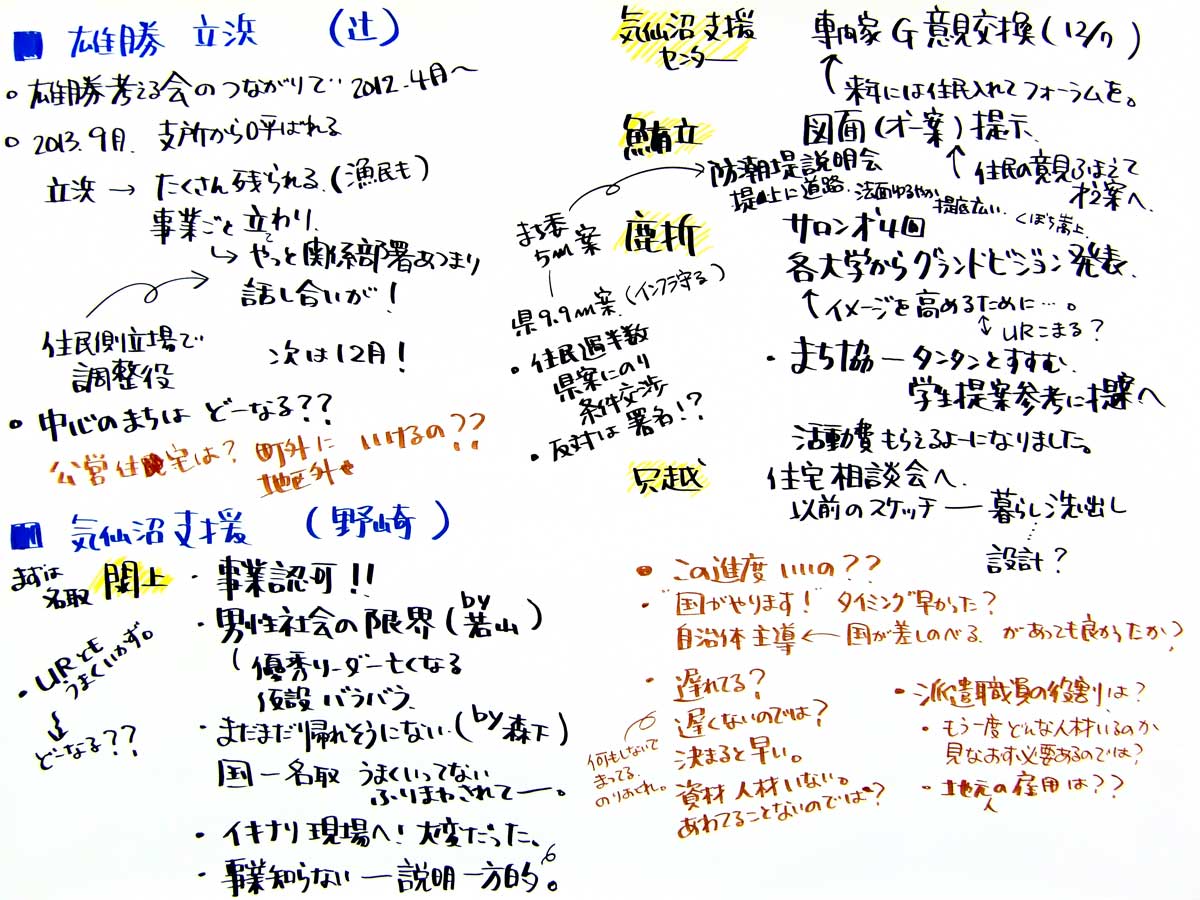 ■ 雄勝 立浜 (辻)
• 雄勝考える会のつながりで 2012.4月〜
• 2013.9月. 支所から呼ばれる
立浜 → たくさん残られる.(漁民も)
事業ごと立わり.
て
↳ やっと関係部署あつまり
話し合いが!
住民側立場で
調整役
次は12月!
• 中心のまちは どーなる??
公営住宅は? 町外に いけるの??
地区外も
■ 気仙沼支援 (野崎)
まずは
名取
閖上
・事業認可!!
・男性社会の限界(by 若山)
優秀リーダー亡くなる
仮設バラバラ.
・まだまだ帰れそうにない.(by 森下)
国ー名取 うまくいってない
ふりまわされてー。
・イキナリ現場へ!大変だった.
・事業知らないー説明一方的。
・URとも
うまくいかず。
↓
どーなる??
気仙沼支援
センター
専門家G意見交換(12/7)
↑
来年には住民入れてフォーラムを。
鮪立
図面(オー案)提示.
↑ 住民の意見ふまえて
オ2案へ.
防潮堤説明会
堤上に道路. 法面ゆるやか
堤底広い.
くぼう嵩上.
まち委
5m案
県9.9m案.(インフラ守る)
・住民過半数
県案にのり
条件交渉
・反対は署名!?
鹿折
サロンオ4回
各大学からグランドビジョン発表.
↑イメージを高めるために…。
↕ URこまる?
・まち協ータンタンとすすむ.
学生提案参考に提案へ
活動費もらえるよーになりました。
只越
住宅相談会へ.
以前のスケッチー暮らし洗出し
⋮
設計?
• この進度いいの??
・"国がやります!" タイミング早かった?
自治体主導 ← 国が差しのべる. があっても良かったか?
・遅れてる?
遅くないのでは?
決まると早い。
資材人材いない。
あわてることないのでは?
何もしないで
まってる.
のりおくれ。
・派遣職員の役割は?
・もう一度どんな人材いるのか
見なおす必要あるのでは?
・地元の雇用は??
人